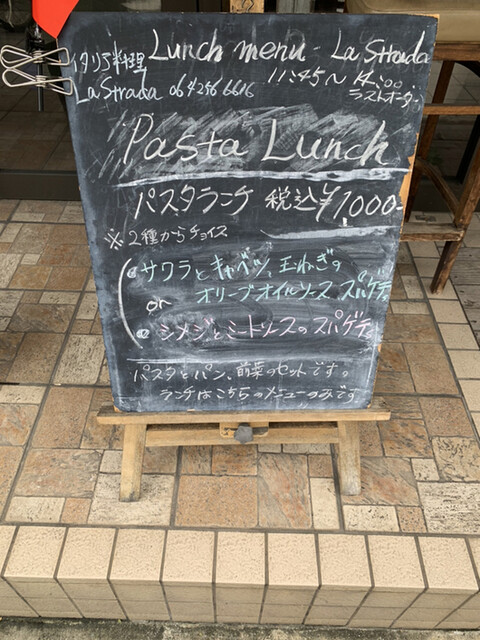 イタリア料理 Lunch menu - La Strada
La Strada 0642566616 11:45〜14:00
ラストオーダー
Pasta Lunch
パスタランチ 税込¥1000-
※2種からチョイス
サワラとキャベツ、玉ねぎの
オリーブオイルソーススパゲティ
or
シメジとミートソースのスパゲティ
パスタとパン、前菜のセットです。
ランチはこちらのメニューのみです